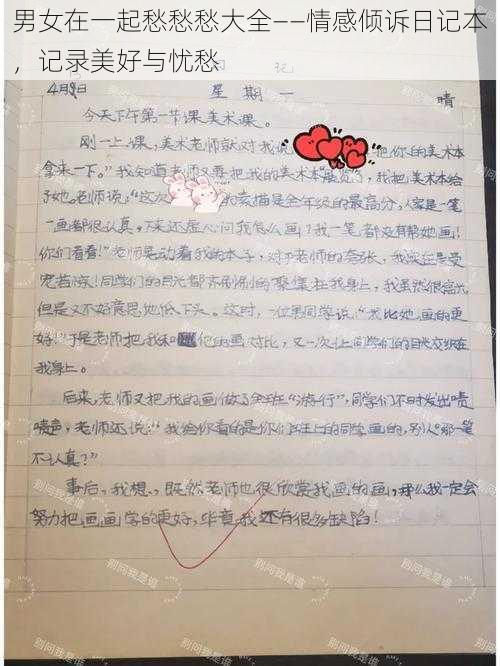 男女在一起愁愁愁大全——情感倾诉日记本
，记录美好与忧愁
记
4月9日 星期一 晴
今天下午第一节课美术课。
刚一上课,美术老师就对我说 把你的美术本
拿来一下。”我知道老师又要把我的美术本“展览”了,我把美术本给
了她。老师说:“这次 的素描是全年级的最高分,人家是一笔
一画都很认真,下来还虚心问我怎么画?我一笔都没有帮她画!
你们看看!”老师晃动着我的本子,对于老师的夸张,我实在是受
宠若惊!同学们的目光都齐刷刷的聚集在我身上,我虽然很高兴
但是又不好意思地低下头。这时,一位男同学说,“我比她画的更
好。”于是老师把我和他的画对比,又一次让同学们的目光交织在
我身上。
后来,老师又把我的画做了全班“游行”,同学们不时发出啧
啧声,老师还说:“我给你看的是你们班上的同学画的,别人那一笔
不认真?”
事后,我想,既然老师也很欣赏我画的画,那么我一定会
努力把画画学的更好,毕竟我还有很多缺陷!
别问我是谁
别问我是谁
别问我是谁
别问我是谁
别问我是谁
别问我是谁